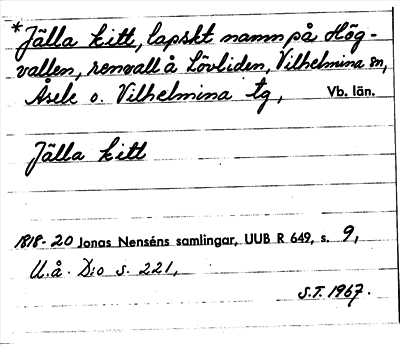 *Jälla kitt, lapskt namn på Hög-
vallen, renvall å Lövliden, Vilhelmina sn,
Åsele o. Vilhelmina tg, Vb. län.
Jälla kitt
1818-20 Jonas Nenséns samlingar, UUB R 649, s. 9,
U.å. D:o s. 221,
S.T. 1967.